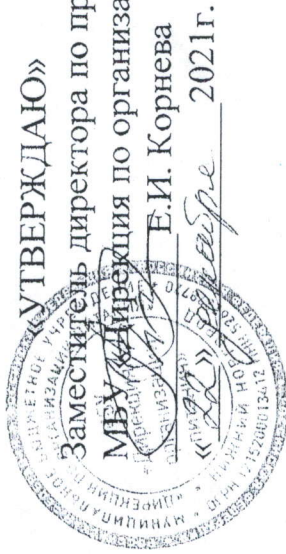 «УТВЕРЖДАЮ»
Заместитель директора по пр
МБУ «Дирекция по организа
Е.И. Корнева
«22» декабря 2021г.